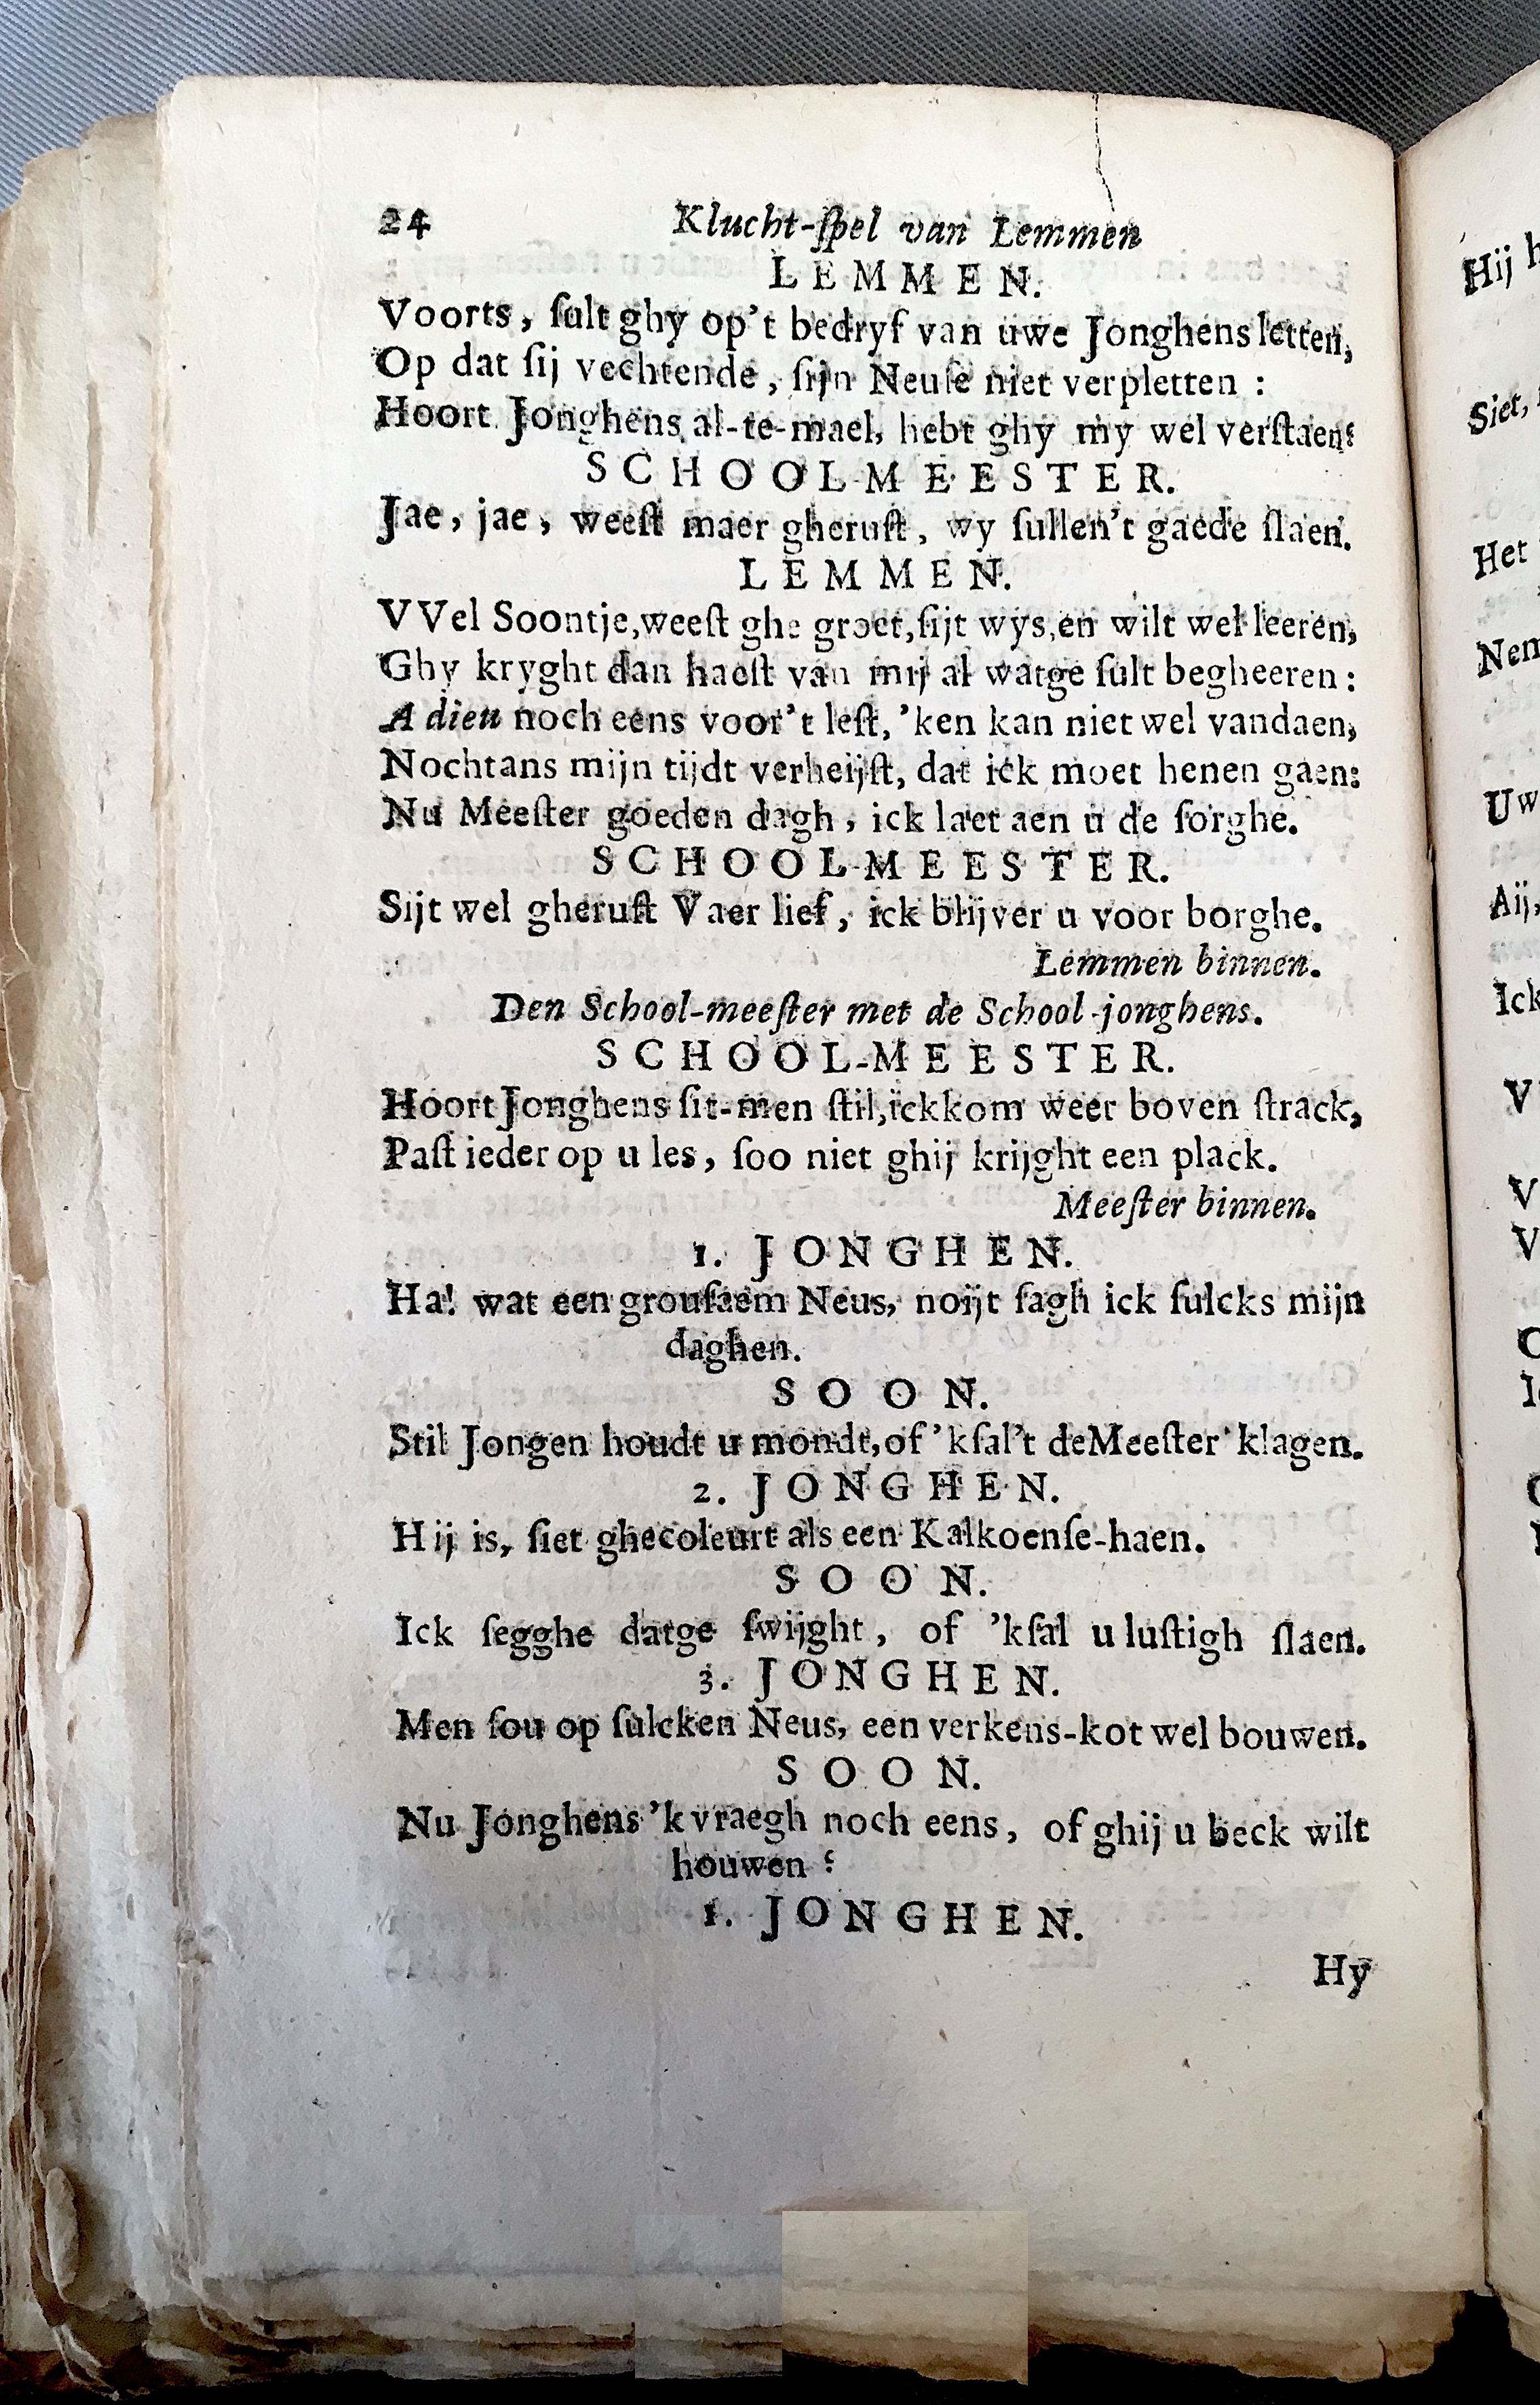 24 Klucht-ſpel van Lemmen
LEMMEN.
Voorts, ſult ghy op't bedryf van uwe Jonghens letten,
Op dat ſij vechtende, ſijn Neuſe niet verpletten :
Hoort Jonghens al-te-mael, hebt ghy my wel verſtaen?
SCHOOL-MEESTER.
Jae, jae, weeſt maer gheruſt, wy ſullen't gaede ſlaen.
LEMMEN.
VVel Soontje, weeſt ghe groet, ſijt wys, en wilt wel leeren,
Ghy kryght dan haeſt van mij al watge ſult begheeren :
A dieu noch eens voor't leſt, 'ken kan niet wel vandaen,
Nochtans mijn tijdt verheijſt, dat ick moet henen gaen:
Nu Meeſter goeden dagh, ick laet aen u de ſorghe.
SCHOOL-MEESTER.
Sijt wel gheruſt Vaer lief, ick blijver u voor borghe.
Lemmen binnen.
Den School-meeſter met de School-jonghens.
SCHOOL-MEESTER.
Hoort Jonghens ſit-men ſtil, ick kom weer boven ſtrack,
Paſt ieder op u les, ſoo niet ghij krijght een plack.
Meeſter binnen.
1. JONGHEN.
Ha! wat een grouſaem Neus, noijt ſagh ick ſulcks mijn
daghen.
SOON.
Stil Jongen houdt u mondt, of 'kſal't de Meeſter klagen.
2. JONGHEN.
Hij is, ſiet ghecoleurt als een Kalkoenſe-haen.
SOON.
Ick ſegghe datge ſwijght, of 'kſal u luſtigh ſlaen.
3. JONGHEN.
Men ſou op ſulcken Neus, een verkens-kot wel bouwen.
SOON.
Nu Jonghens 'k vraegh noch eens, of ghij u beck wilt
houwen ?
1. JONGHEN.
Hy
Hij
Siet,
Het
Nem
Uw
Aij,
Ick
V
V
V